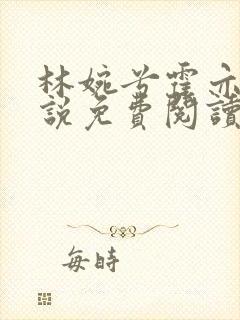 林婉兮霍亦
說免費閱讀
每時